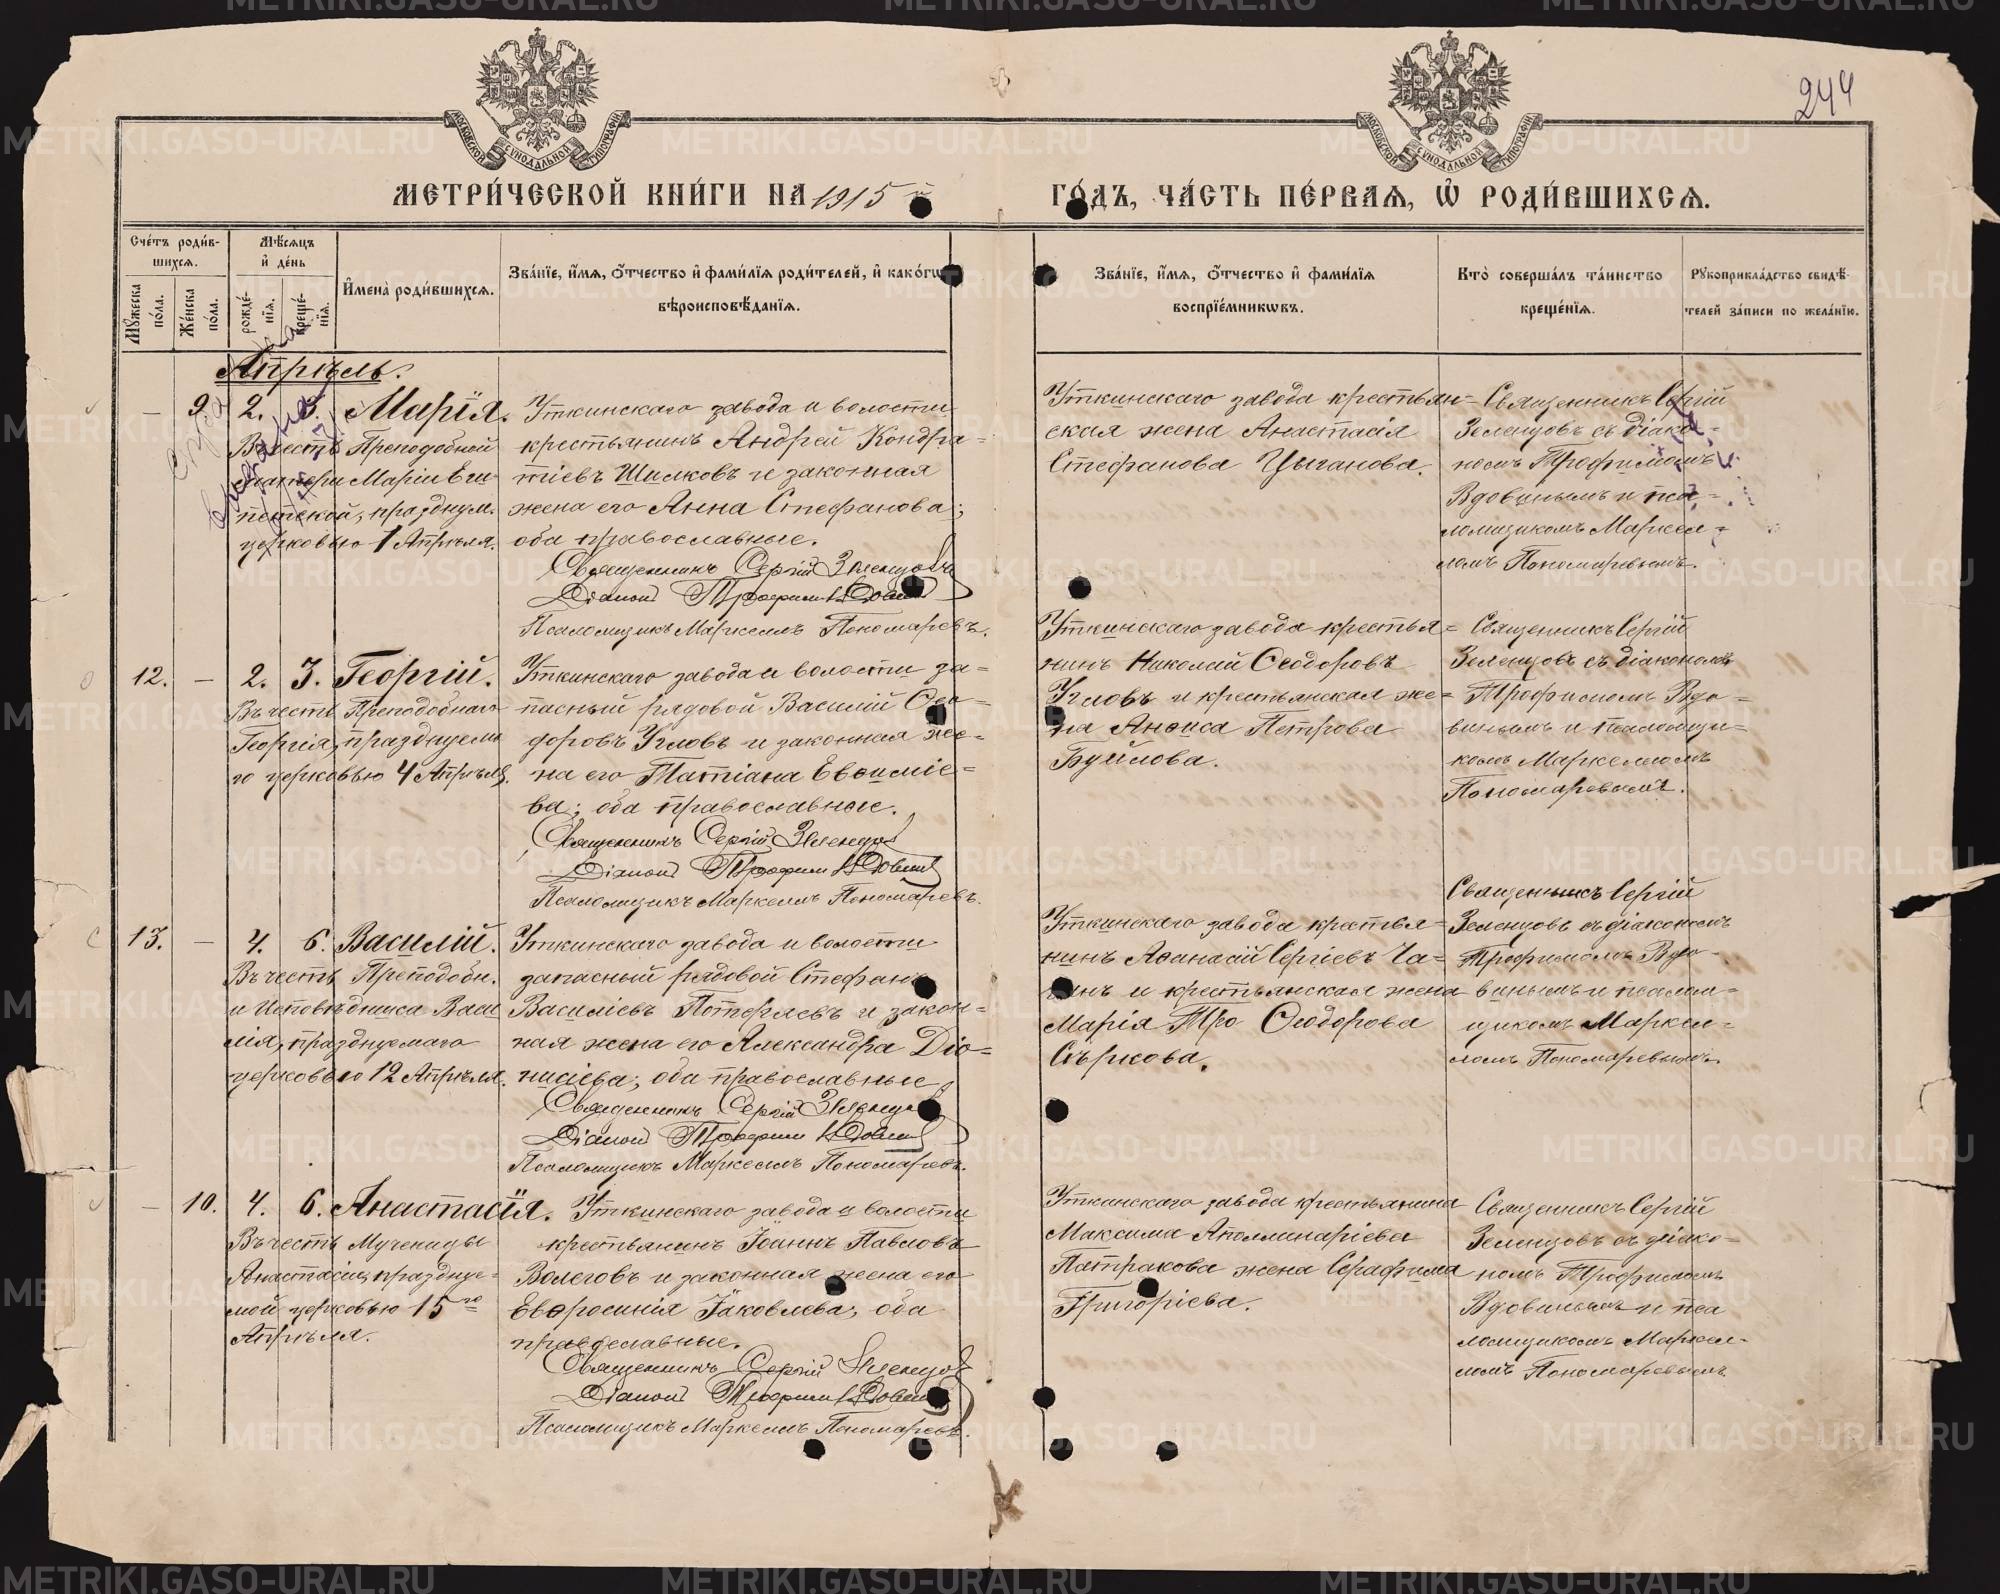 244
МОСКОВСКОЙ СѴНОДАЛЬНОЙ ТИПОГРАФІИ
МОСКОВСКОЙ СѴНОДАЛЬНОЙ ТИПОГРАФІИ
МЕТРИ́ЧЕСКОЙ КНИ́ГИ НА 1915 й ГО́ДЪ, ЧА́СТЬ ПЕ́РВАѦ, Ѡ҆ РОДИ́ВШИХСѦ.
Сче́тъ роди́в-
шихсѧ.
Мꙋ́жеска по́ла.
Же́нска по́ла.
Мѣ́сѧцъ
и҆ де́нь
рожде́-
нїѧ.
креще́-
нїѧ.
И҆мена̀ роди́вшихсѧ.
Зва́нїе, и҆́мѧ, ѻ҆́тчество и҆ фами́лїѧ роди́телей, и҆ како́гѡ
вѣроисповѣ́данїѧ.
Зва́нїе, и҆́мѧ, ѻ҆́тчество и҆ фами́лїѧ
воспрїе́мникѡвъ.
Кто̀ соверша́лъ та́инство
креще́нїѧ.
Рꙋкоприкла́дство свидѣ́-
телей за́писи по жела́нїю.
Апрѣль.
— 9. 2. 3. Марія.
Въ честь Преподобной
матери Маріи Еги-
петской, празднуем.
церковью 1 Апрѣля.
Уткинскаго завода и волости
крестьянинъ Андрей Кондра=
тіевъ Шилковъ и законная
жена его Анна Стефанова;
оба православные.
Священникъ Сергій Зеленцовъ
Діаконъ Трофимъ Вдовинъ
Псаломщикъ Маркеллъ Пономаревъ.
Уткинскаго завода крестьян=
ская жена Анастасія
Стефанова Цыганова.
Священникъ Сергій
Зеленцовъ съ діако-
номъ Трофимомъ
Вдовинымъ и пса=
ломщикомъ Маркел=
ломъ Пономаревымъ.
12. — 2. 3. Георгій.
Въ честь Преподобнаго
Георгія, празднуема
го церковью 4 Апрѣля.
Уткинскаго завода и волости за=
пасный рядовой Василій Ѳео=
доровъ Угловъ и законная же=
на его Татіана Евѳиміе=
ва; оба православные.
Священникъ Сергій Зеленцовъ
Діаконъ Трофимъ Вдовинъ
Псаломщикъ Маркеллъ Пономаревъ.
Уткинскаго завода крестья=
нинъ Николай Ѳеодоровъ
Угловъ и крестьянская же=
на Анѳиса Петрова
Буйлова.
Священникъ Сергій
Зеленцовъ съ діакономъ
Трофимомъ Вдо=
винымъ и псаломщи=
комъ Маркелломъ
Пономаревымъ.
13. — 4. 6. Василій.
Въ честь Преподобн.
и Исповѣдника Васи
лія, празднуемаго
церковью 12 Апрѣля.
Уткинскаго завода и волости
запасный рядовой Стефанъ
Василіевъ Потеряевъ и закон=
ная жена его Александра Діо=
нисіева; оба православные
Священникъ Сергій Зеленцовъ
Діаконъ Трофимъ Вдовинъ
Псаломщикъ Маркеллъ Пономаревъ.
Уткинскаго завода крестья=
нинъ Аѳанасій Сергіевъ Ча=
гинъ и крестьянская жена
Марія Тро Ѳеодорова
Сѣркова.
Священникъ Сергій
Зеленцовъ съ діакономъ
Трофимомъ Вдо-
винымъ и псалом=
щикомъ Маркел=
ломъ Пономаревымъ.
— 10. 4. 6. Анастасія.
Въ честь Мученицы
Анастасіи, праздцуе=
мой церковью 15го
Апрѣля.
Уткинскаго завода и волости
крестьянинъ Іоаннъ Павловъ
Волеговъ и законная жена его
Евфросинія Іаковлева; оба
православные.
Священникъ Сергій Зеленцовъ
Діаконъ Трофимъ Вдовинъ
Псаломщикъ Маркеллъ Пономаревъ.
Уткинскаго завода крестьянина
Максима Аполлинаріева
Патракова жена Серафима
Григоріева.
Священникъ Сергій
Зеленцовъ съ діако-
номъ Трофимомъ
Вдовинымъ и пса
ломщикомъ Маркел-
ломъ Пономаревымъ.
METRIKI.GASO-URAL.RU